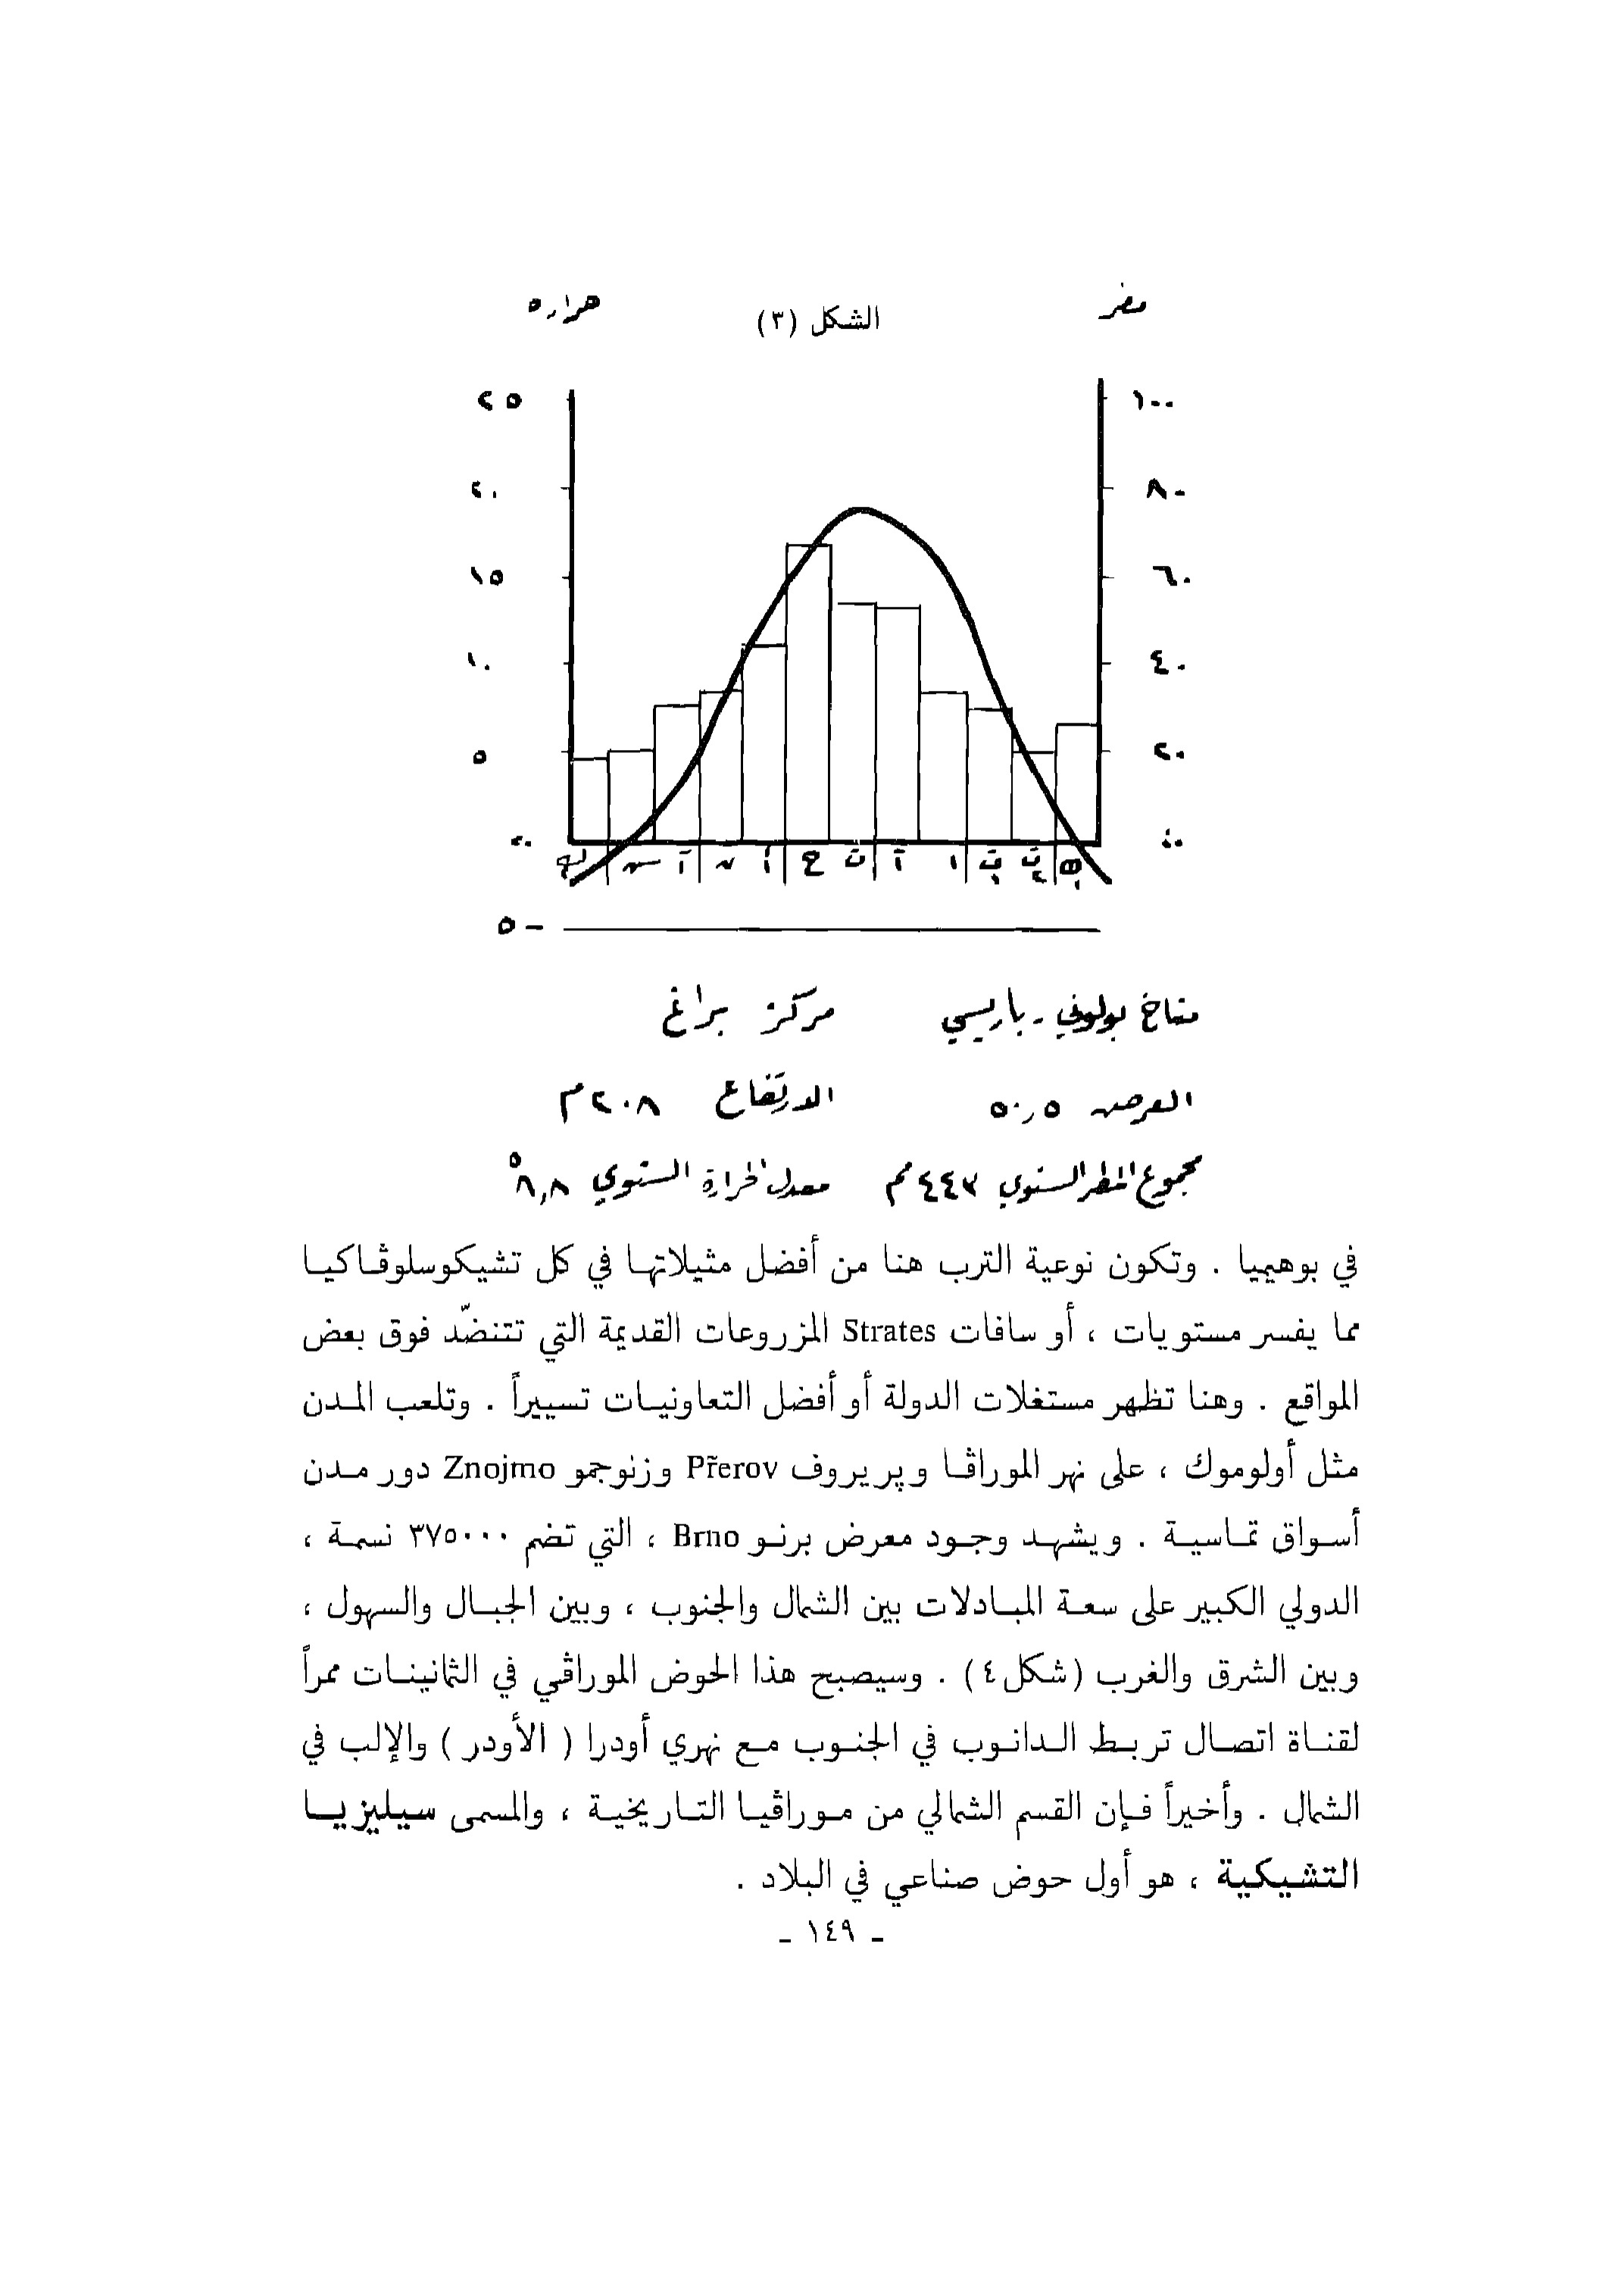 حراره
الشكل (٣)
مطر
٢٥
١٠٠
٢٠
٨٠
١٥
٦٠
١٠
٤٠
٥
٢٠
٠٠
٠٠
ك٢ س آ ن أ ح ت آ ا ت١ ت٢ ك١
- ٥
مناخ بولوني - باريسي مركز براغ
العرض ٥٠,٥ الارتفاع ٢٠٨ م
مجموع المطر السنوي ٤٤٣ مم معدل الحرارة السنوي ٨,٨°
في بوهيميا . وتكون نوعية الترب هنا من أفضل مثيلاتها في كل تشيكوسلوڤاكيا
مما يفسر مستويات ، أو سافات Strates المزروعات القديمة التي تتنضّد فوق بعض
المواقع . وهنا تظهر مستغلات الدولة أو أفضل التعاونيات تسييراً . وتلعب المدن
مثل أولوموك ، على نهر الموراڤا وپريروف Přerov وزنوجمو Znojmo دور مدن
أسواق تماسية . ويشهد وجود معرض برنو Brno ، التي تضم ٣٧٥٠٠٠ نسمة ،
الدولي الكبير على سعة المبادلات بين الشمال والجنوب ، وبين الجبال والسهول ،
وبين الشرق والغرب (شكل ٤) . وسيصبح هذا الحوض الموراڤي في الثمانينات ممراً
لقناة اتصال تربط الدانوب في الجنوب مع نهري أودرا ( الأودر ) والإلب في
الشمال . وأخيراً فإن القسم الشمالي من موراڤيا التاريخية ، والمسمى سيليزيا
التشيكية ، هو أول حوض صناعي في البلاد .
- ١٤٩ -